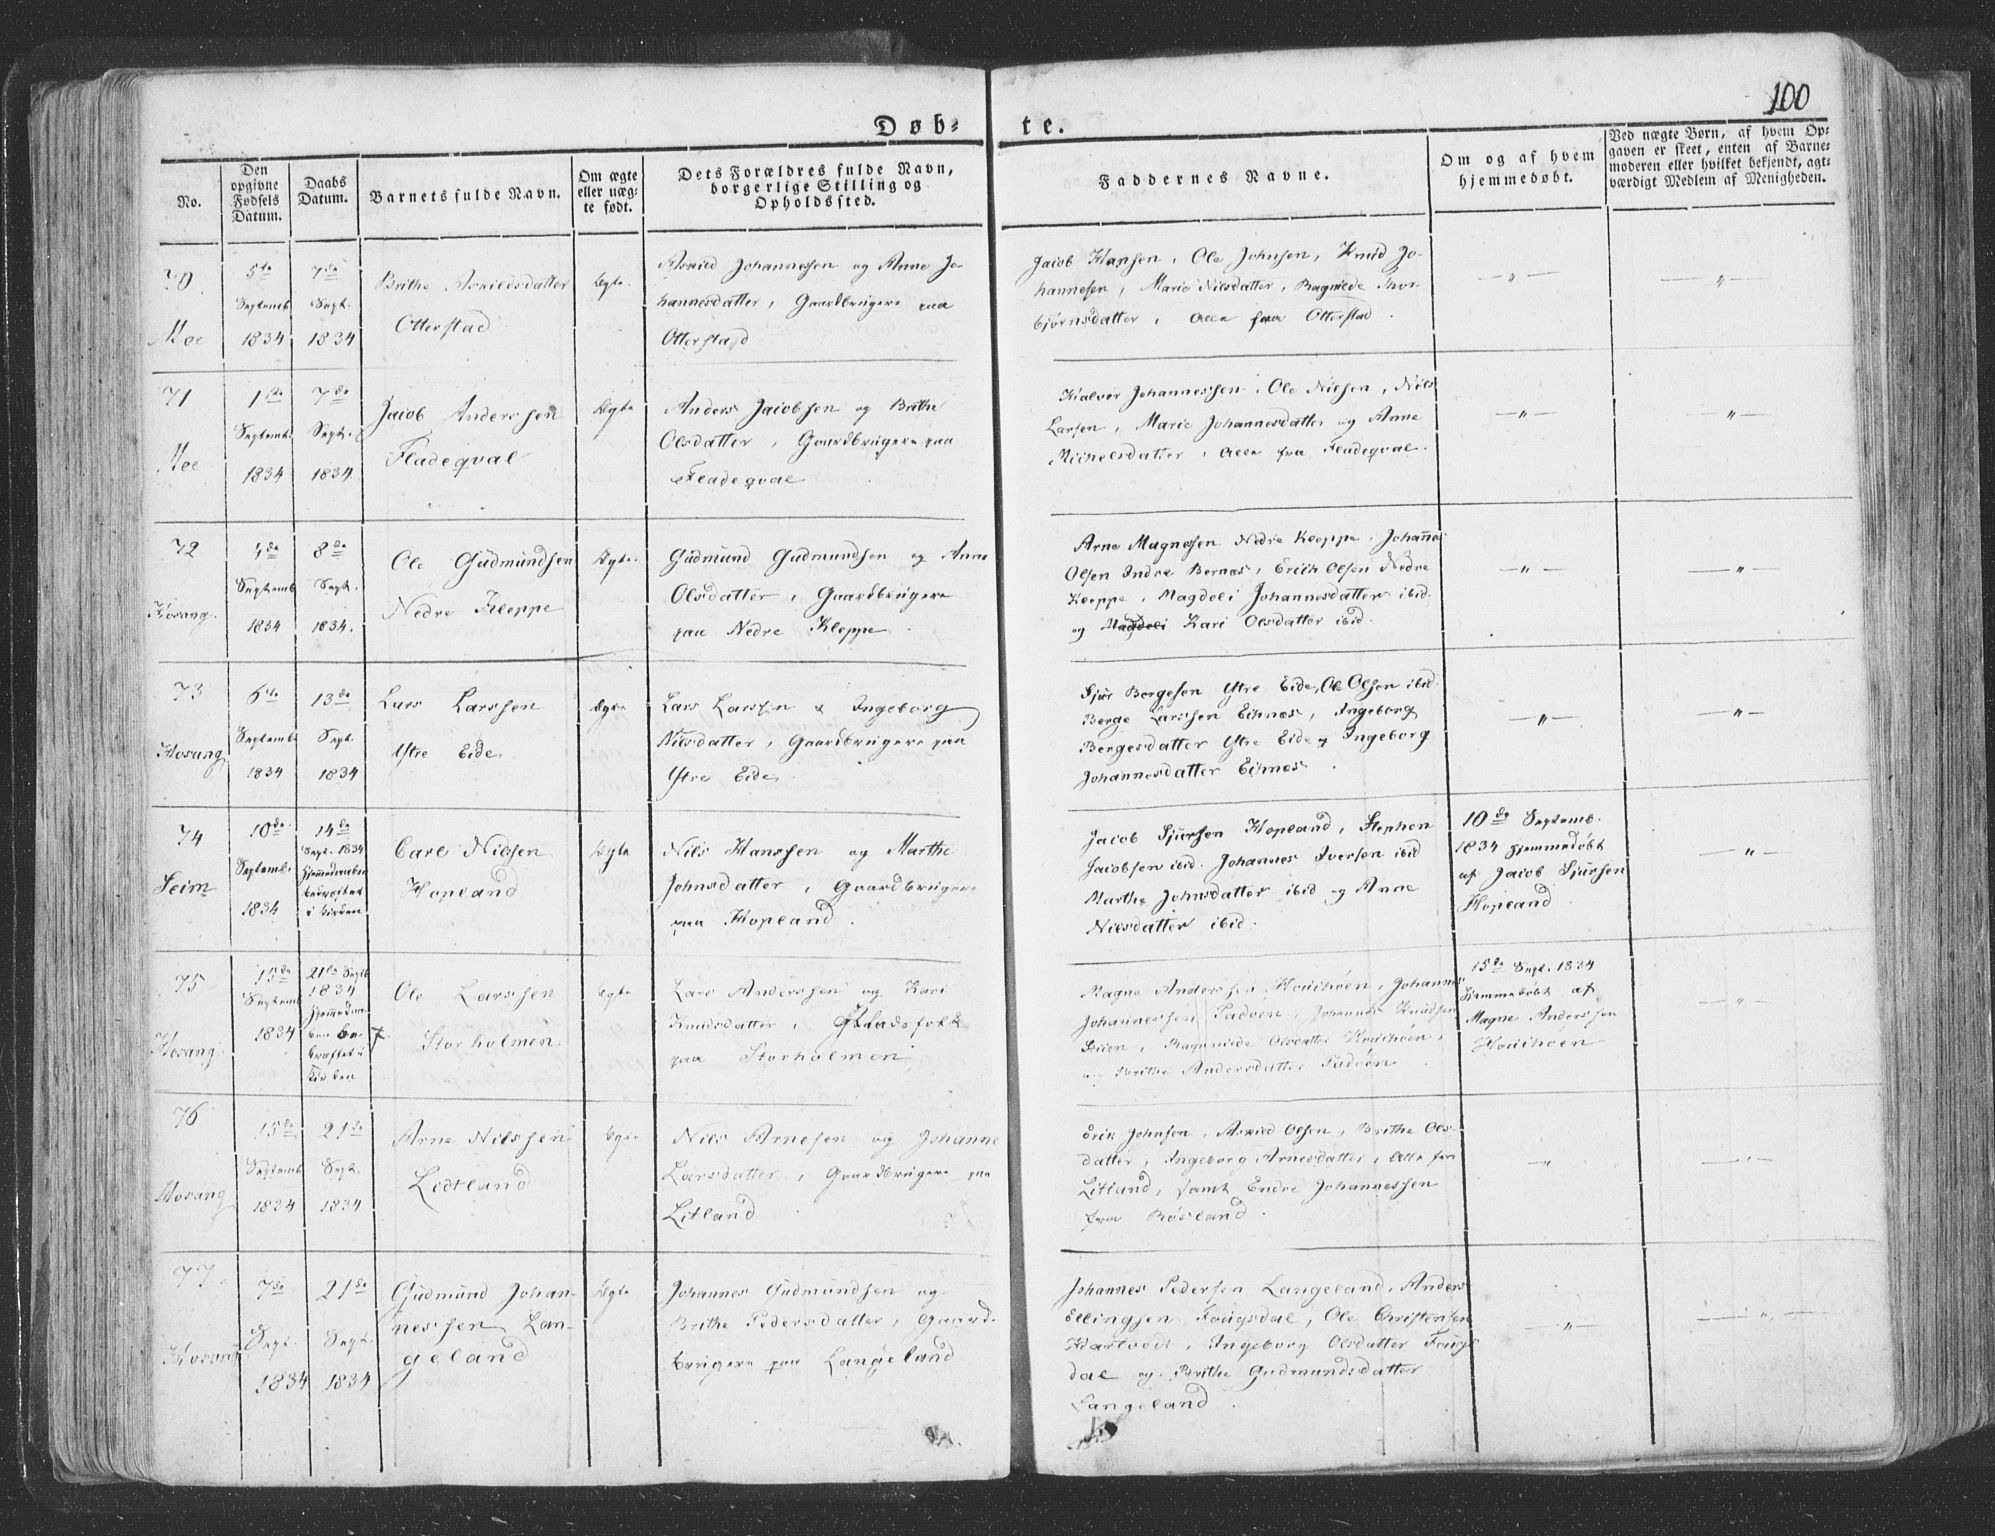 100
Døb-
te.
No.
Den opgivne Fødsels Datum.
Daabs Datum.
Barnets fulde Navn.
Om ægte eller uægte født.
Dets Forældres fulde Navn, borgerlige Stilling og Opholdssted.
Faddernes Navne.
Om og af hvem hjemmedøbt.
Ved uægte Børn, af hvem Opgaven er skeet, enten af Barnemoderen eller hvilket bekjendt, agtværdigt Medlem af Menigheden.
70
Moe
5te Septemb. 1834
7de Sept. 1834
Brithe Askildsdatter
Otterstad
Ægte.
Askild Johannessen og Anne Jo-
hannesdatter, Gaardbrugere paa
Otterstad
Jacob Hansen, Ole Johnsen, Knud Jo-
hannesen, Marie Nilsdatter, Ragnilde Thor-
bjørnsdatter, alle fra Otterstad.
—"—
—"—
71
Moe
1ste Septemb. 1834
7de Sept. 1834
Jacob Anderssen
Fladeqval
Ægte
Anders Jacobsen og Brithe
Olsdatter, Gaardbrugere paa
Fladeqval
Halvor Johannessen, Ole Nilsen, Nils
Larsen, Marie Johannesdatter og Anne
Michelsdatter, alle fra Fladeqval.
—"—
—"—
72
Hosang.
4de Septemb. 1834
8de Sept. 1834.
Ole Gudmundsen
Nedre Kleppe
Ægte.
Gudmund Gudmundsen og Anne
Olsdatter, Gaardbrugere
paa Nedre Kleppe.
Arne Magnesen Nedre Kleppe, Johannes
Olsen Indre Bernes, Erich Olsen Nedre
Kleppe, Magdeli Johannesdatter ibid.
og Magdeli Kari Olsdatter ibid.
—"—
—"—
73
Hosang
6te Septemb. 1834
13de Sept. 1834
Lars Larssen
Ystre Eide
Ægte
Lars Larssen & Ingeborg
Nilsdatter, Gaardbrugere paa
Ystre Eide.
Sjur Bergesen Ystre Eide, Ole Olsen ibid.
Berge Larssen Eihnes, Ingeborg
Bergesdatter Ystre Eide og Ingeborg
Johannesdatter Eihnes.
—"—
—"—
74
Seim
10de Septemb. 1834
14de Sept. 1834 Hjemmedaaben bekræftet i Kirken
Carl Nilsen
Hopland
Ægte
Nils Hanssen og Marthe
Johnsdatter, Gaardbrugere
paa Hopland.
Jacob Sjursen Hopland, Stephen
Jacobsen ibid. Johannes Iversen ibid
Marthe Johnsdatter ibid og Anne
Nilsdatter ibid.
10de Septemb.
1834 hjemmedøbt
af Jacob Sjursen
Hopland.
—"—
75
Hosang.
15de Septemb. 1834
21de Sept. 1834 Hjemmedaaben bekræftet i Kirken
Ole Larssen
Storholmen
Ægte
Lars Anderssen og Kari
Knudsdatter,
paa Storholmen
Magne Anderssen Houihoen, Johannes
Johannessen Padoen, Johannes Knudsen
Ragnilde Olsdatter Houihoen,
og Brithe Andersdatter Padoen
15de Sept. 1834
Hjemmedøbt af
Magne Anderssen
Houihoen
—"—
76
Hosang
15de Septemb. 1834
21de Sept. 1834
Arne Nilssen
Lidtland
Ægte
Nils Arnesen og Johanne
Larsdatter, Gaardbrugere paa
Litland
Erik Johnsen, Askild Olsen, Brithe Ols-
datter, Ingeborg Arnesdatter, alle fra
Litland, samt Endre Johannessen
fra Røsland.
—"—
—"—
77.
Hosang
7de Sept. 1834
21de Sept. 1834
Gudmund Johan-
nessen Lan-
geland
Ægte
Johannes Gudmundsen og
Brithe Pedersdatter, Gaard-
brugere paa Langeland
Johannes Pedersen Langeland, Anders
Ellingsen Fougsdal, Ole Christensen
Hartvedt, Ingeborg Olsdatter Fougs-
dal og Brithe Gudmundsdatter
Langeland.
—"—
—"—